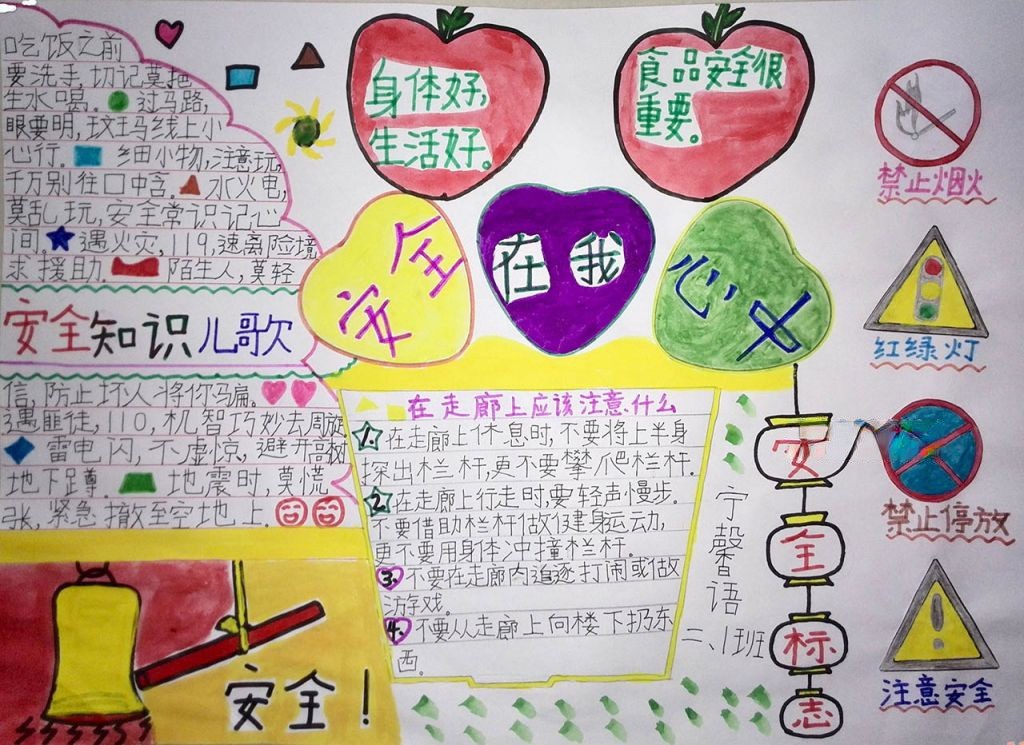 吃饭之前
要洗手,切记莫把
生水喝。过马路,
眼要明,斑马线上小
心行。细小物,注意玩,
千万别往口中含。水火电,
莫乱玩,安全常识记心
间。遇火灾,119,速离险境
求援助。陌生人,莫轻
安全知识儿歌
信,防止坏人将你骗。
遇匪徒,110,机智巧妙去周旋
雷电闪,不虚惊,避开高树
地下蹲。地震时,莫慌
张,紧急撤至空地上。
安全!
身体好,
生活好。
食品安全很
重要。
安全
在我
心中
在走廊上应该注意什么
1.在走廊上休息时,不要将上半身
探出栏杆,更不要攀爬栏杆。
2.在走廊上行走时,要轻声慢步。
不要借助栏杆做健身运动,
更不要用身体冲撞栏杆。
3.不要在走廊内追逐打闹或做
游戏。
4.不要从走廊上向楼下扔东
西。
宁馨语
二、1班
安全标志
禁止烟火
红绿灯
禁止停放
注意安全